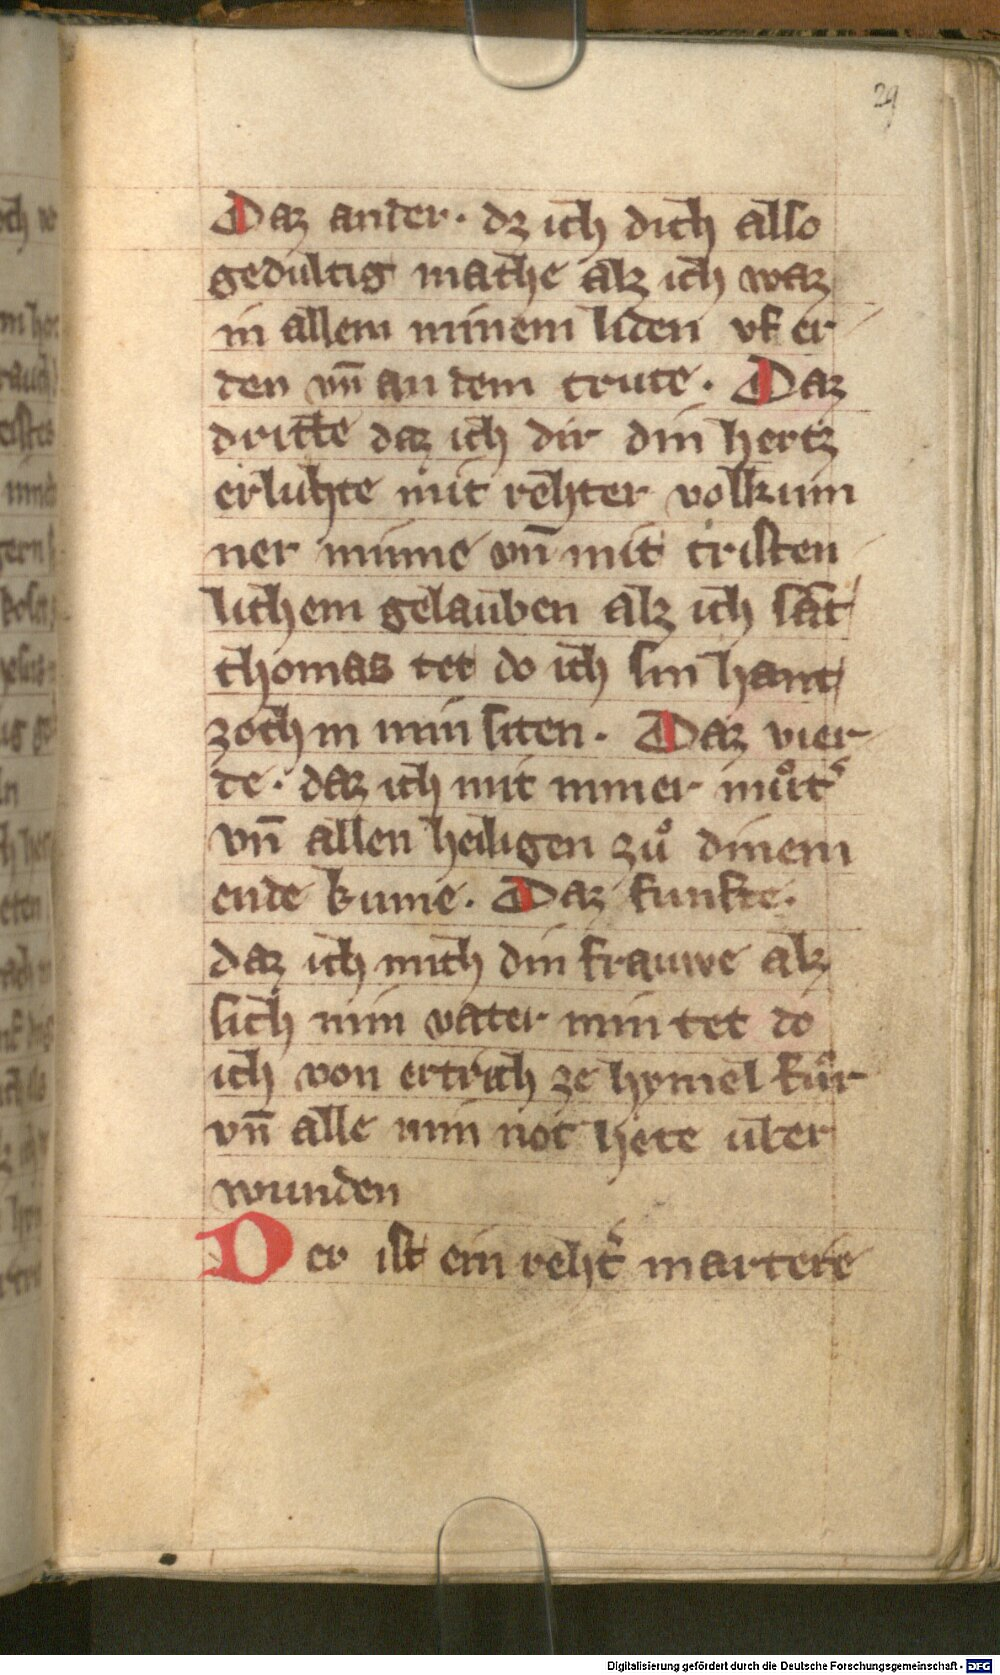 29
Daz ander· dz ich dich also
gedultig mache alz ich waz
in allem minem liden vf er
den vn̄ an dem crute· Daz
dritte daz ich dir din hertz
erluhte mit rehter volkum
ner minne vn̄ mit cristen
lichem gelauben alz ich sāt
thomas tet do ich sin hant
zoch in min siten· Daz vier
de· daz ich mit miner muͦt᷑
vn̄ allen heiligen zuͦ dinem
ende kume· Daz funfte·
daz ich mich din frauwe alz
sich min vater min tet do
ich von ertrich ze hymel fuͦr
vn̄ alle min not hete uber
wunden
Der ist ein reht᷑ martere
Digitalisierung gefördert durch die Deutsche Forschungsgemeinschaft - DFG